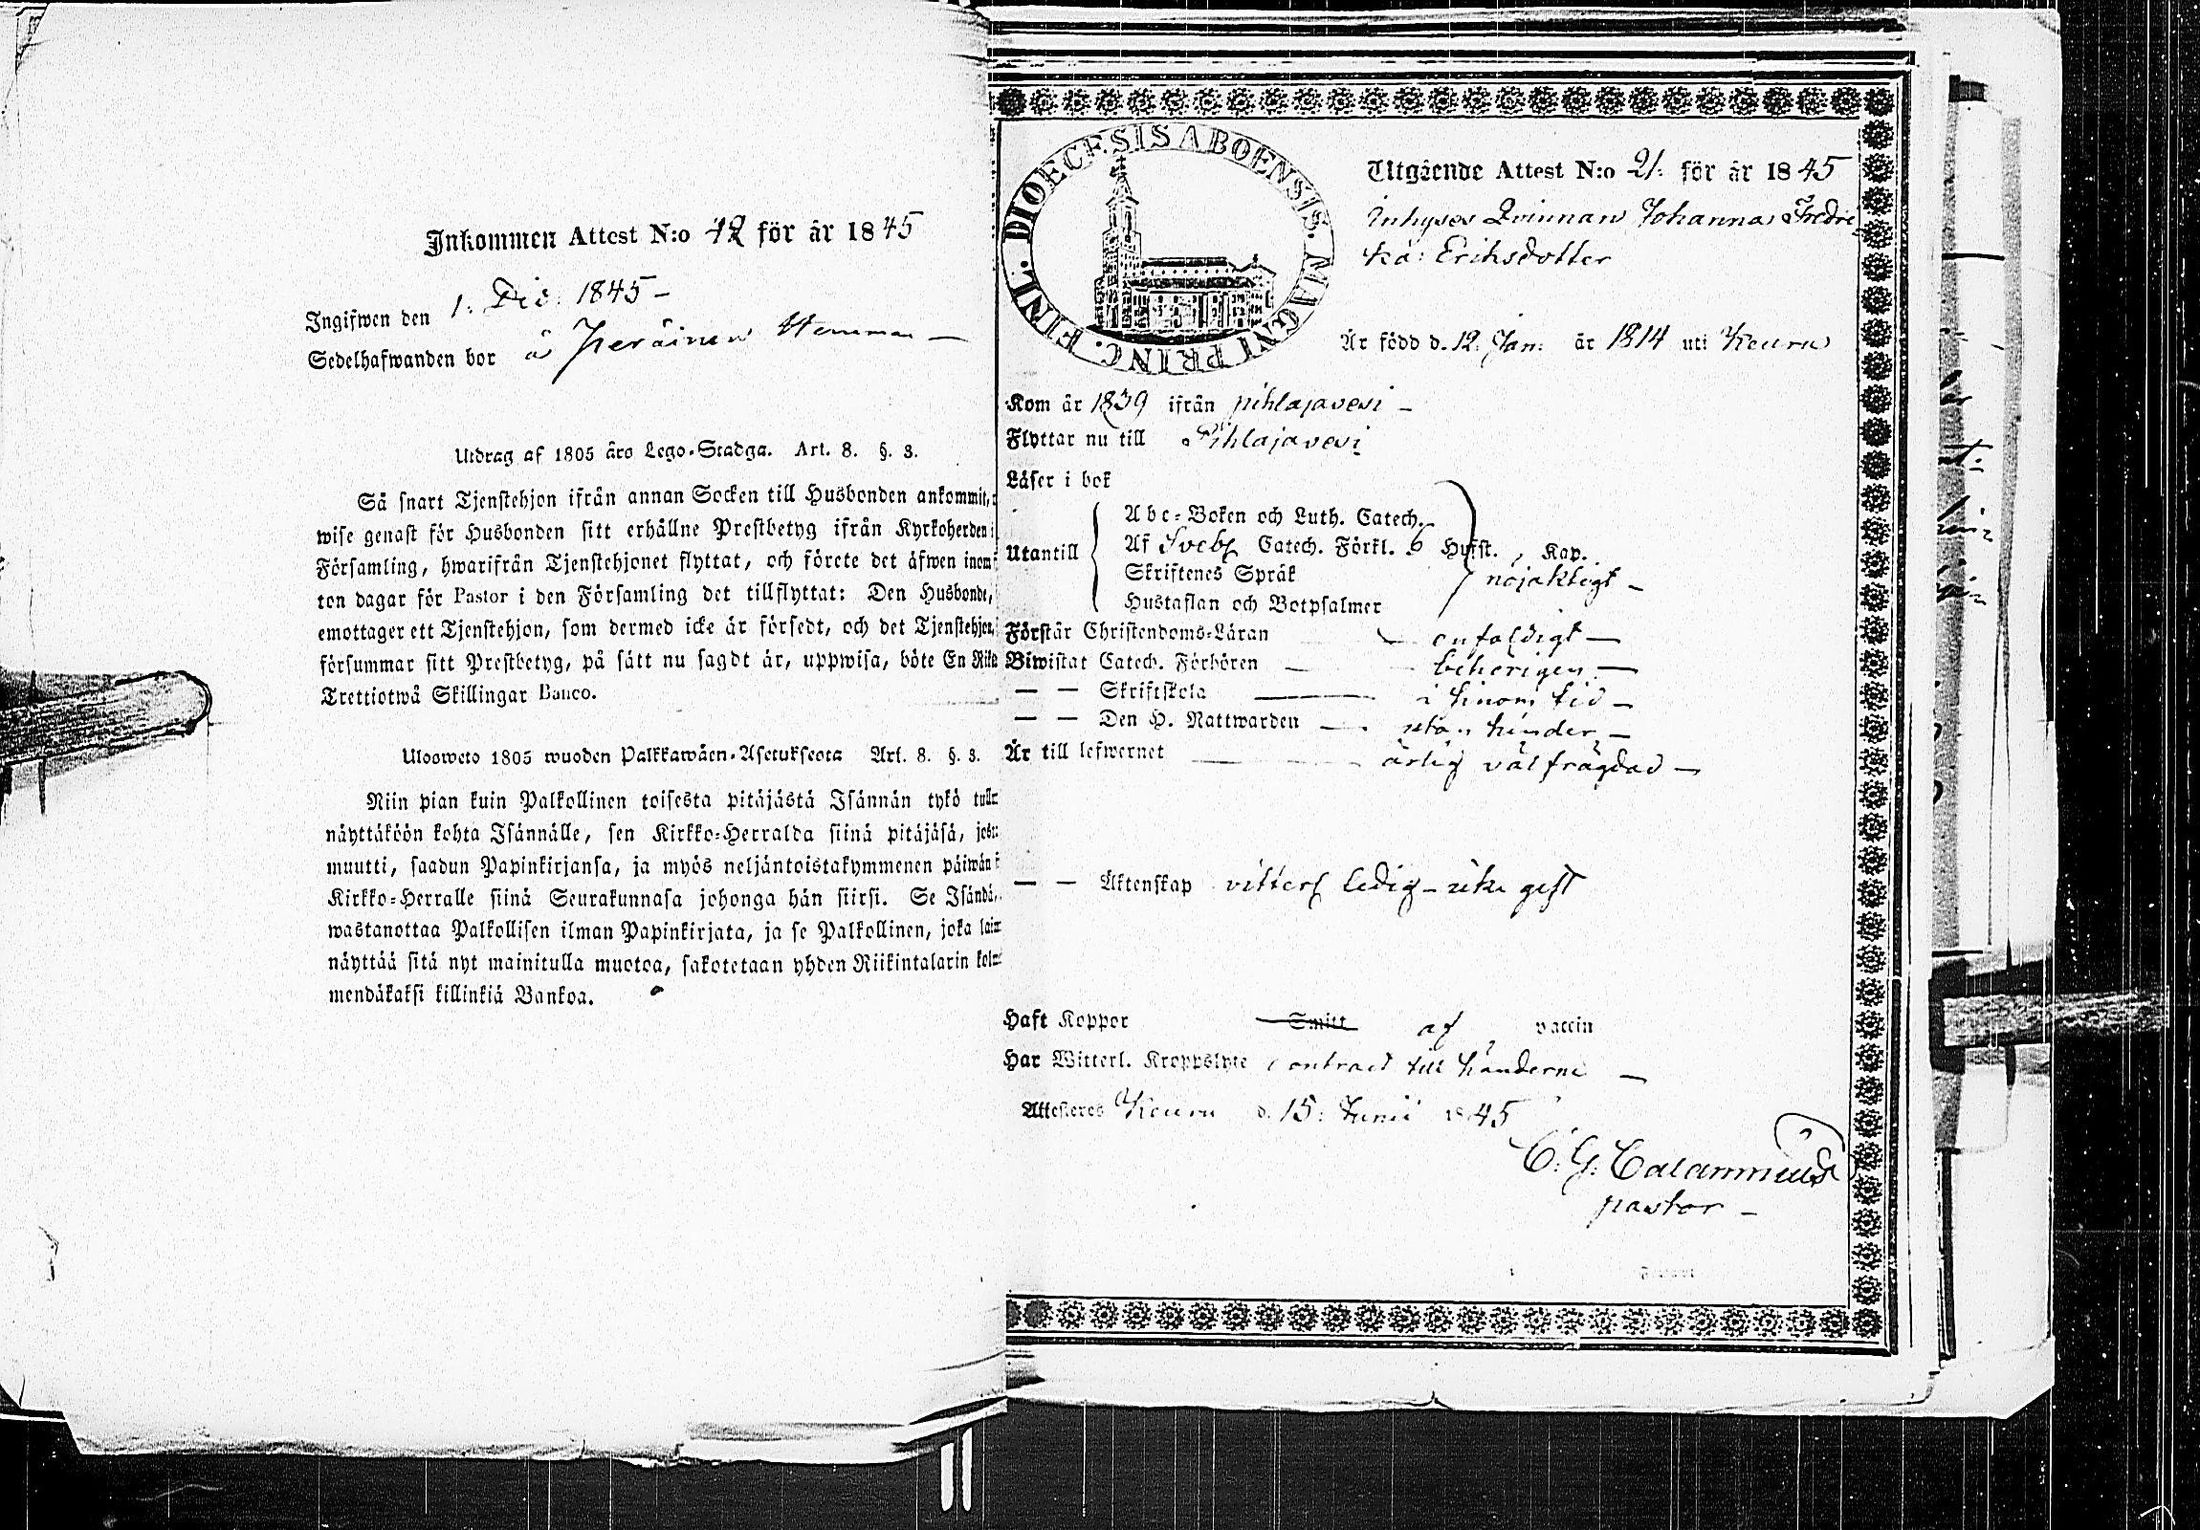 Inkommen Attest N:o 12 för år 1845
Ingifwen den 1. Dec. 1845 –
Sedelhafwanden bor å Keräinen Hemman –
Utdrag af 1805 års Lego-Stadga. Art. 8. §. 3.
Så snart Tjenstehjon ifrån annan Socken till Husbonden ankommit,
wise genast för Husbonden sitt erhållne Prestbetyg ifrån Kyrkoherden i
Församling, hwarifrån Tjenstehjonet flyttat, och förete det äfwen inom
ton dagar för Pastor i den Församling det tillflyttat: Den Husbonde,
emottager ett Tjenstehjon, som dermed icke är försedt, och det Tjenstehjon,
försummar sitt Prestbetyg, på sätt nu sagdt är, uppwisa, böte En Riks
Trettiotwå Skillingar Banco.
Ulosweto 1805 wuoden Palkkawäen-Asetuksesta Art. 8. §. 3.
Niin pian kuin Palkollinen toisesta pitäjästä Isännän tykö tull
näyttäköön kohta Isännälle, sen Kirkko-Herralda siinä pitäjäsä, jos
muutti, saadun Papinkirjansa, ja myös neljäntoistakymmenen päiwän
Kirkko-Herralle siinä Seurakunnasa johonga hän siirsi. Se Isändä,
wastanottaa Palkollisen ilman Papinkirjata, ja se Palkollinen, joka lai
näyttää sitä nyt mainitulla muotoa, sakotetaan yhden Riikintalarin kol
mendäkaksi killinkiä Bankoa.
DIOECESIS ABOENSIS. MAGNI PRINC. FINL.
Utgående Attest N:o 21. för år 1845
Inhyses Qvinnan Johanna Fredri
ka Eriksdotter
Är född d. 12. Jan. år 1814 uti Keuru
Kom år 1839 ifrån pihlajavesi –
Flyttar nu till Pihlajavesi
Läser i bok
Utantill
Abc-Boken och Luth. Catech.
Af Svebs Catech. Förkl. 6 Hufst. , Kap.
Skriftenes Språk nöjaktigt –
Hustaflan och Botpsalmer
Förstår Christendoms-Läran – enfaldigt –
Biwistat Catech. Förhören – behörigen –
— — Skriftskola — i sinom tid –
— — Den H. Nattwarden — utan hinder –
Är till lefwernet — ärlig väl frägdad –
— — Äktenskap vitterl ledig – icke gift
Haft Koppor Smitt af vaccin
Har Witterl. Kroppslyte contract till händerne –
Attesteres Keuru d. 15. Junii 1845
C. G. Calamnius
pastor –